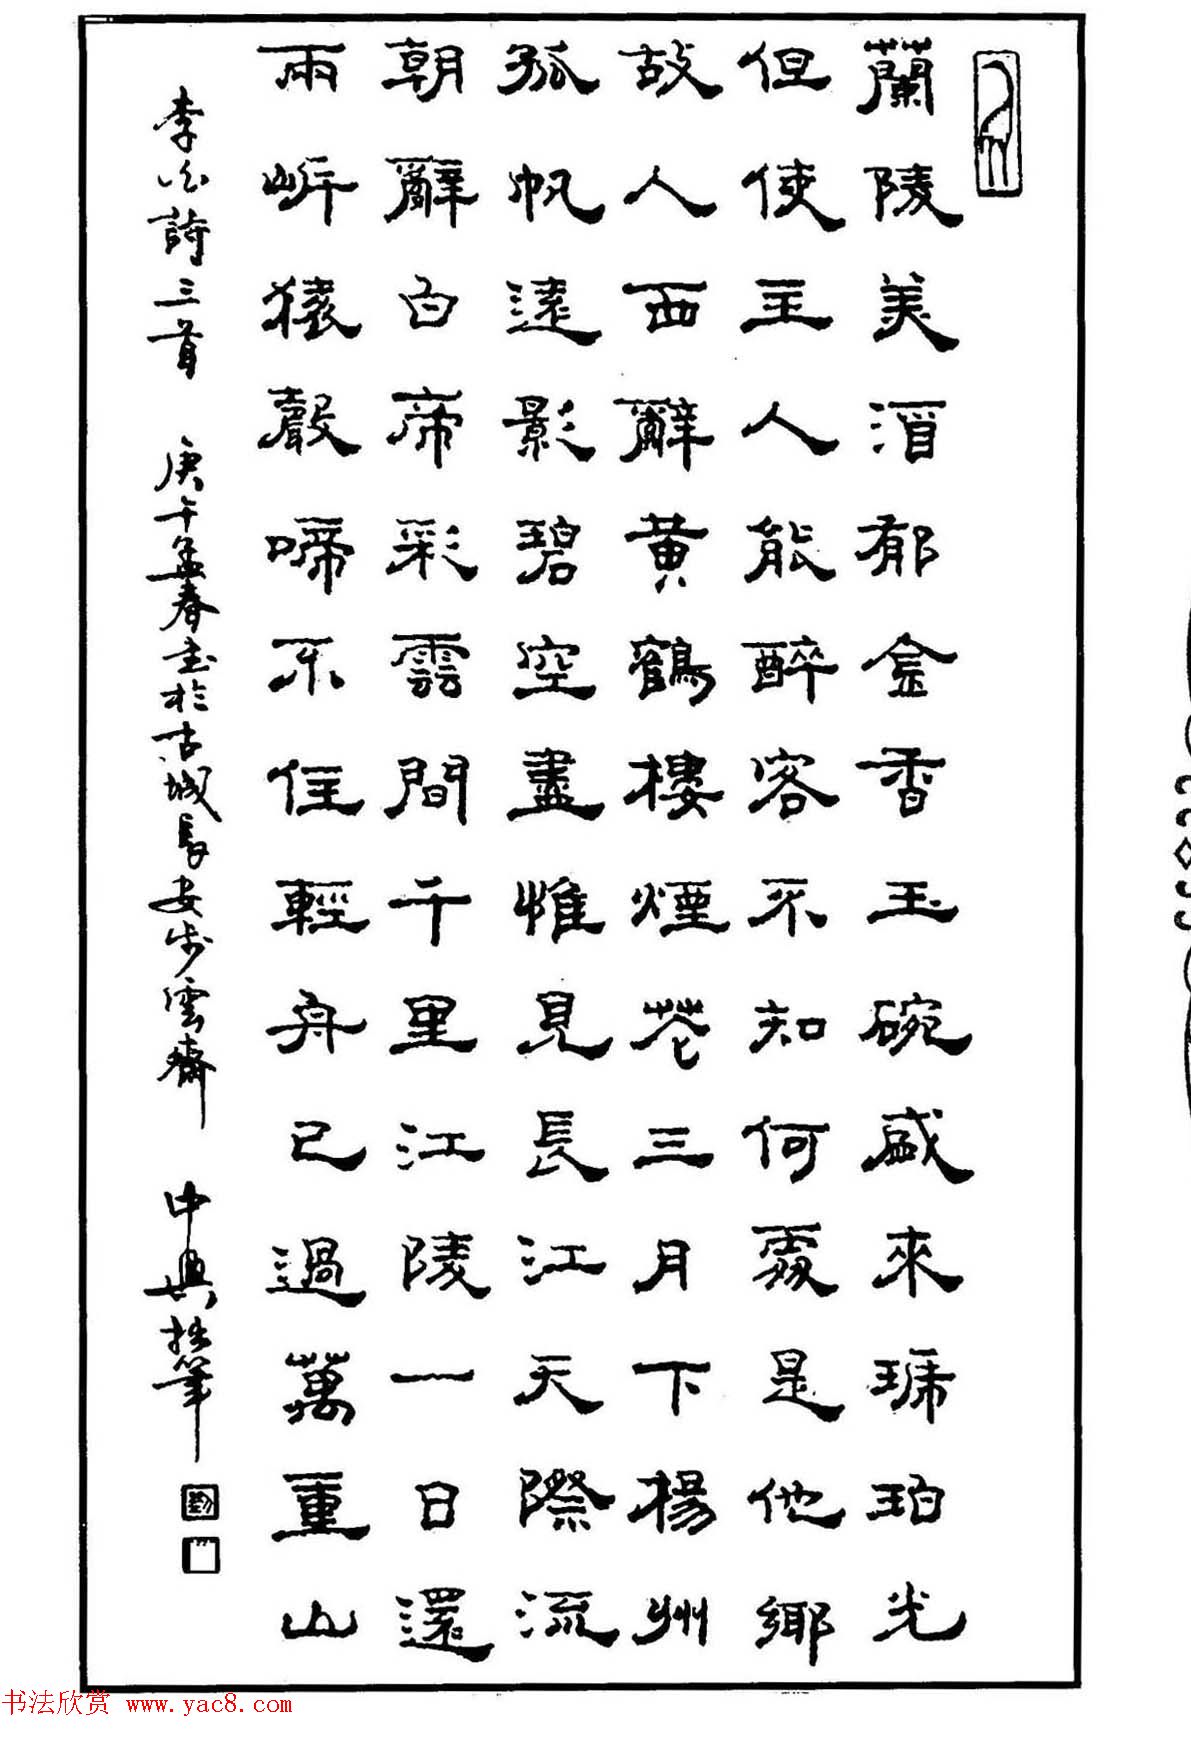 蘭陵美酒郁金香玉碗盛來琥珀光
但使主人能醉客不知何處是他鄉
故人西辭黃鶴樓煙花三月下楊州
孤帆遠影碧空盡惟見長江天際流
朝辭白帝彩雲間千里江陵一日還
兩岍猿聲啼不住輕舟已過萬重山
李白詩三首 庚午孟春書於古城長安步雲齋 中興拙筆
书法欣赏 www.yac8.com